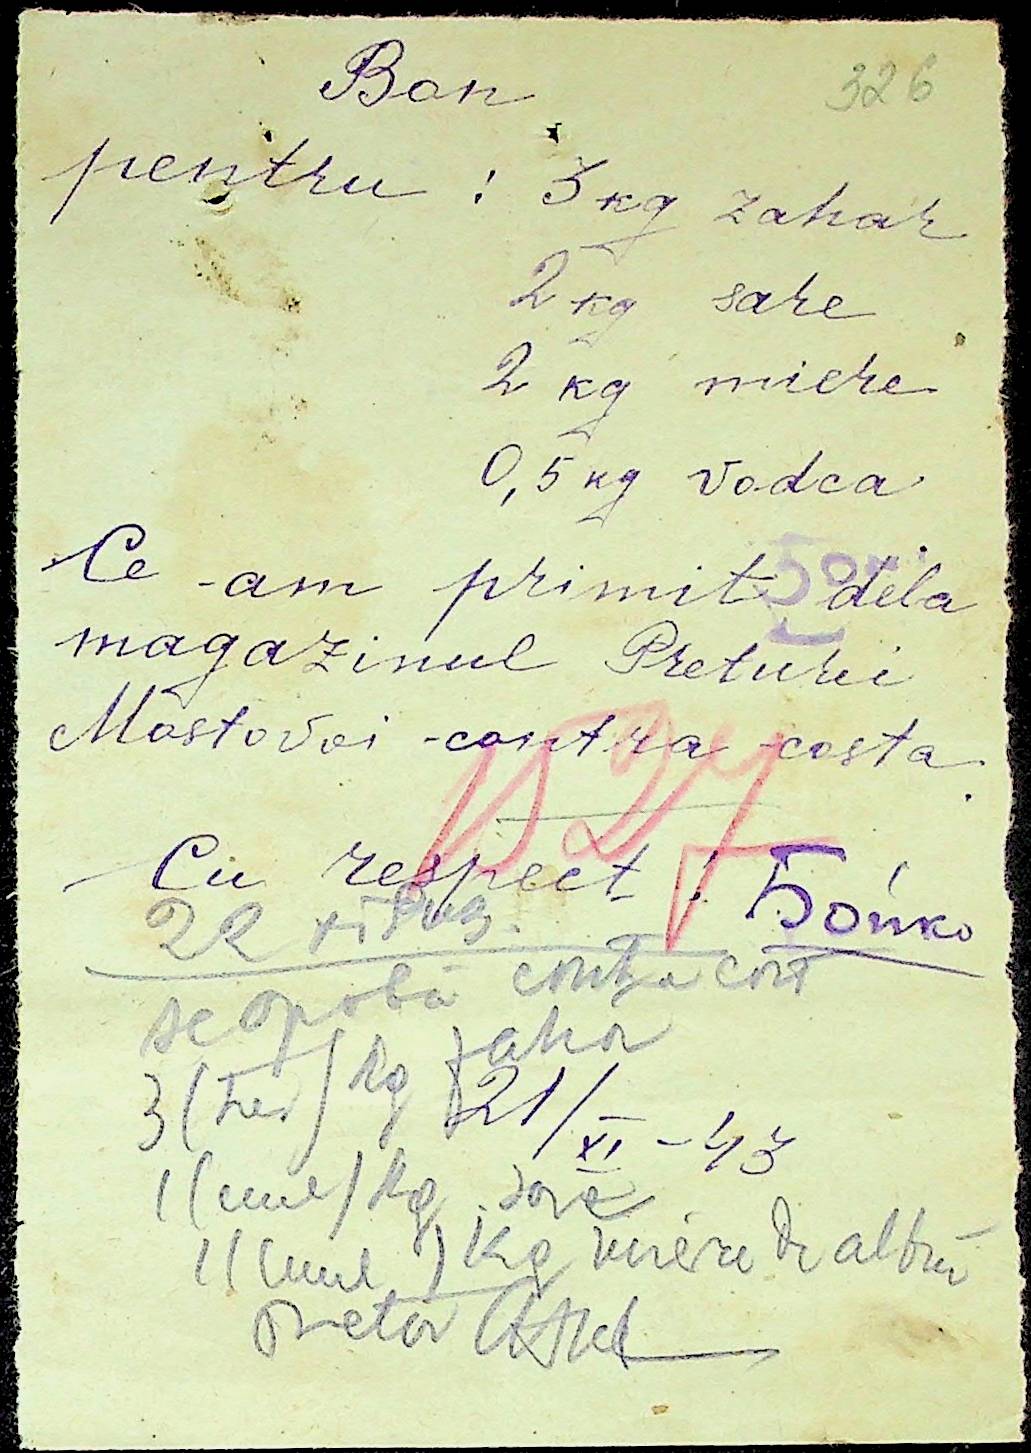 326
Bon
pentru : 3 kg zahar
2 kg sare
2 kg miere
0,5 kg vodca
Ce -am primit dela
magazinul Preturii
Mostovoi -contra costa.
Cu respect : Бойко
22 XI
se aprobă contra cost
3 (trei) kg zahar
21/XI -43
1 (unul) kg sare
1 (unul) kg miere de albin
Pretor